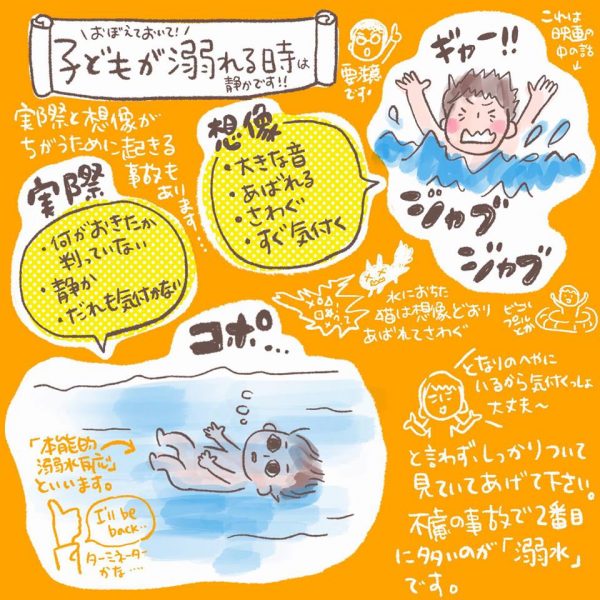 おぼえておいて!
子どもが溺れる時は
静かです!!
要注意
です
これは
映画の
中の話
↓
ギャー!!
実際と想像が
ちがうために起きる
事故も
あります…
想像
・大きな音
・あばれる
・さわぐ
・すぐ気付く
実際
・何がおきたか
判っていない
・静か
・だれも気付かない
ジャブ
ジャブ
水におちた
猫は想像どおり
あばれてさわぐ
プール
とか
コポ…
「本能的
溺水反応」
といいます。
I'll be
back…
ターミネーター
かな……
となりのへやに
いるから気付くっしょ
大丈夫〜
と言わず、しっかりついて
見ていてあげて下さい。
不慮の事故で2番目
に多いのが「溺水」
です。